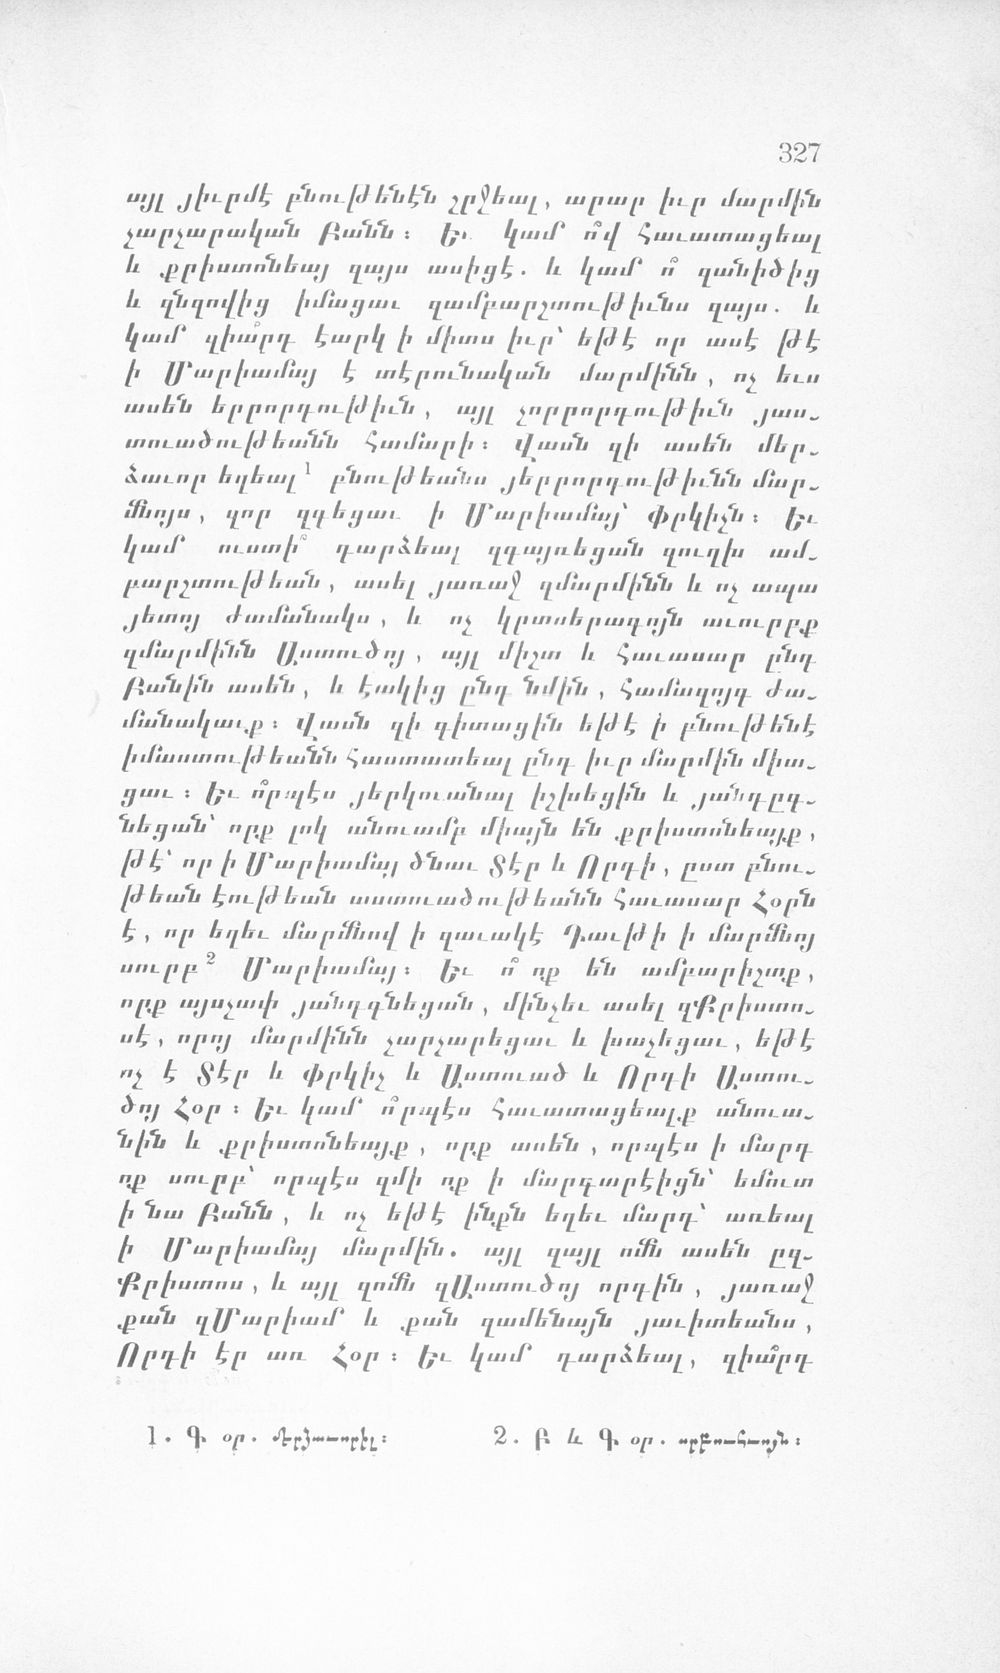 327
այլ յիւրմէ բնութենէն շրջեալ, արար իւր մարմին
չարչարական Բանն։ Եւ կամ ո՞վ հաւատացեալ
և քրիստոնեայ զայս ասիցէ. և կամ ո՞ զանիծից
և զնզովից իմացաւ զամբարշտութիւնս զայս. և
կամ զիա՞րդ էարկ ի միտս իւր՝ եթէ որ ասէ թէ
ի Մարիամայ է տէրունական մարմինն, ոչ ևս
ասեն երրորդութիւն, այլ չորրորդութիւն յաս-
տուածութեանն համարի։ Վասն զի ասեն մեր-
ձաւոր եղեալ¹ բնութեանս յերրորդութիւնն մար-
մնոյս, զոր զգեցաւ ի Մարիամայ՝ Փրկիչն։ Եւ
կամ ուստի՞ դարձեալ զգայռեցան զուղխ ամ-
բարշտութեան, ասել յառաջ զմարմինն և ոչ ապա
յետոյ ժամանակս, և ոչ կրտսերագոյն աւուրբք
զմարմինն Աստուծոյ, այլ միշտ և հաւասար ընդ
Բանին ասեն, և էակից ընդ նմին, համազոյգ ժա-
մանակաւք։ Վասն զի գիտացին եթէ ի բնութենէ
իմաստութեանն հաստատեալ ընդ իւր մարմին միա-
ցաւ։ Եւ ո՞րպէս յերկուանալ իշխեցին և յանդըգ-
նեցան՝ որք լոկ անուամբ միայն են քրիստոնեայք,
թէ՝ որ ի Մարիամայ ծնաւ Տէր և Որդի, ըստ բնու-
թեան էութեան աստուածութեանն հաւասար Հօրն
է, որ եղեւ մարմնով ի զաւակէ Դաւթի ի մարմնոյ
սուրբ² Մարիամայ։ Եւ ո՞ ոք են ամբարիշտք,
որք այսչափ յանդգնեցան, մինչեւ ասել զՔրիստո-
սէ, որոյ մարմինն չարչարեցաւ և խաչեցաւ, եթէ
ոչ է Տէր և Փրկիչ և Աստուած և Որդի Աստու-
ծոյ Հօր։ Եւ կամ ո՞րպէս հաւատացեալք անուա-
նին և քրիստոնեայք, որք ասեն, որպէս ի մարդ
ոք սուրբ՝ որպէս զմի ոք ի մարգարէիցն՝ եմուտ
ի նա Բանն, և ոչ եթէ ինքն եղեւ մարդ՝ առեալ
ի Մարիամայ մարմին. այլ զայլ ոմն ասեն ըզ-
Քրիստոս, և այլ զոմն զԱստուծոյ որդին, յառաջ
քան զՄարիամ և քան զամենայն յաւիտեանս,
Որդի էր առ Հօր։ Եւ կամ դարձեալ, զիա՞րդ
1. Գ օր. մերձաւորել։ 2. Բ և Գ օր. սրբուհւոյն։